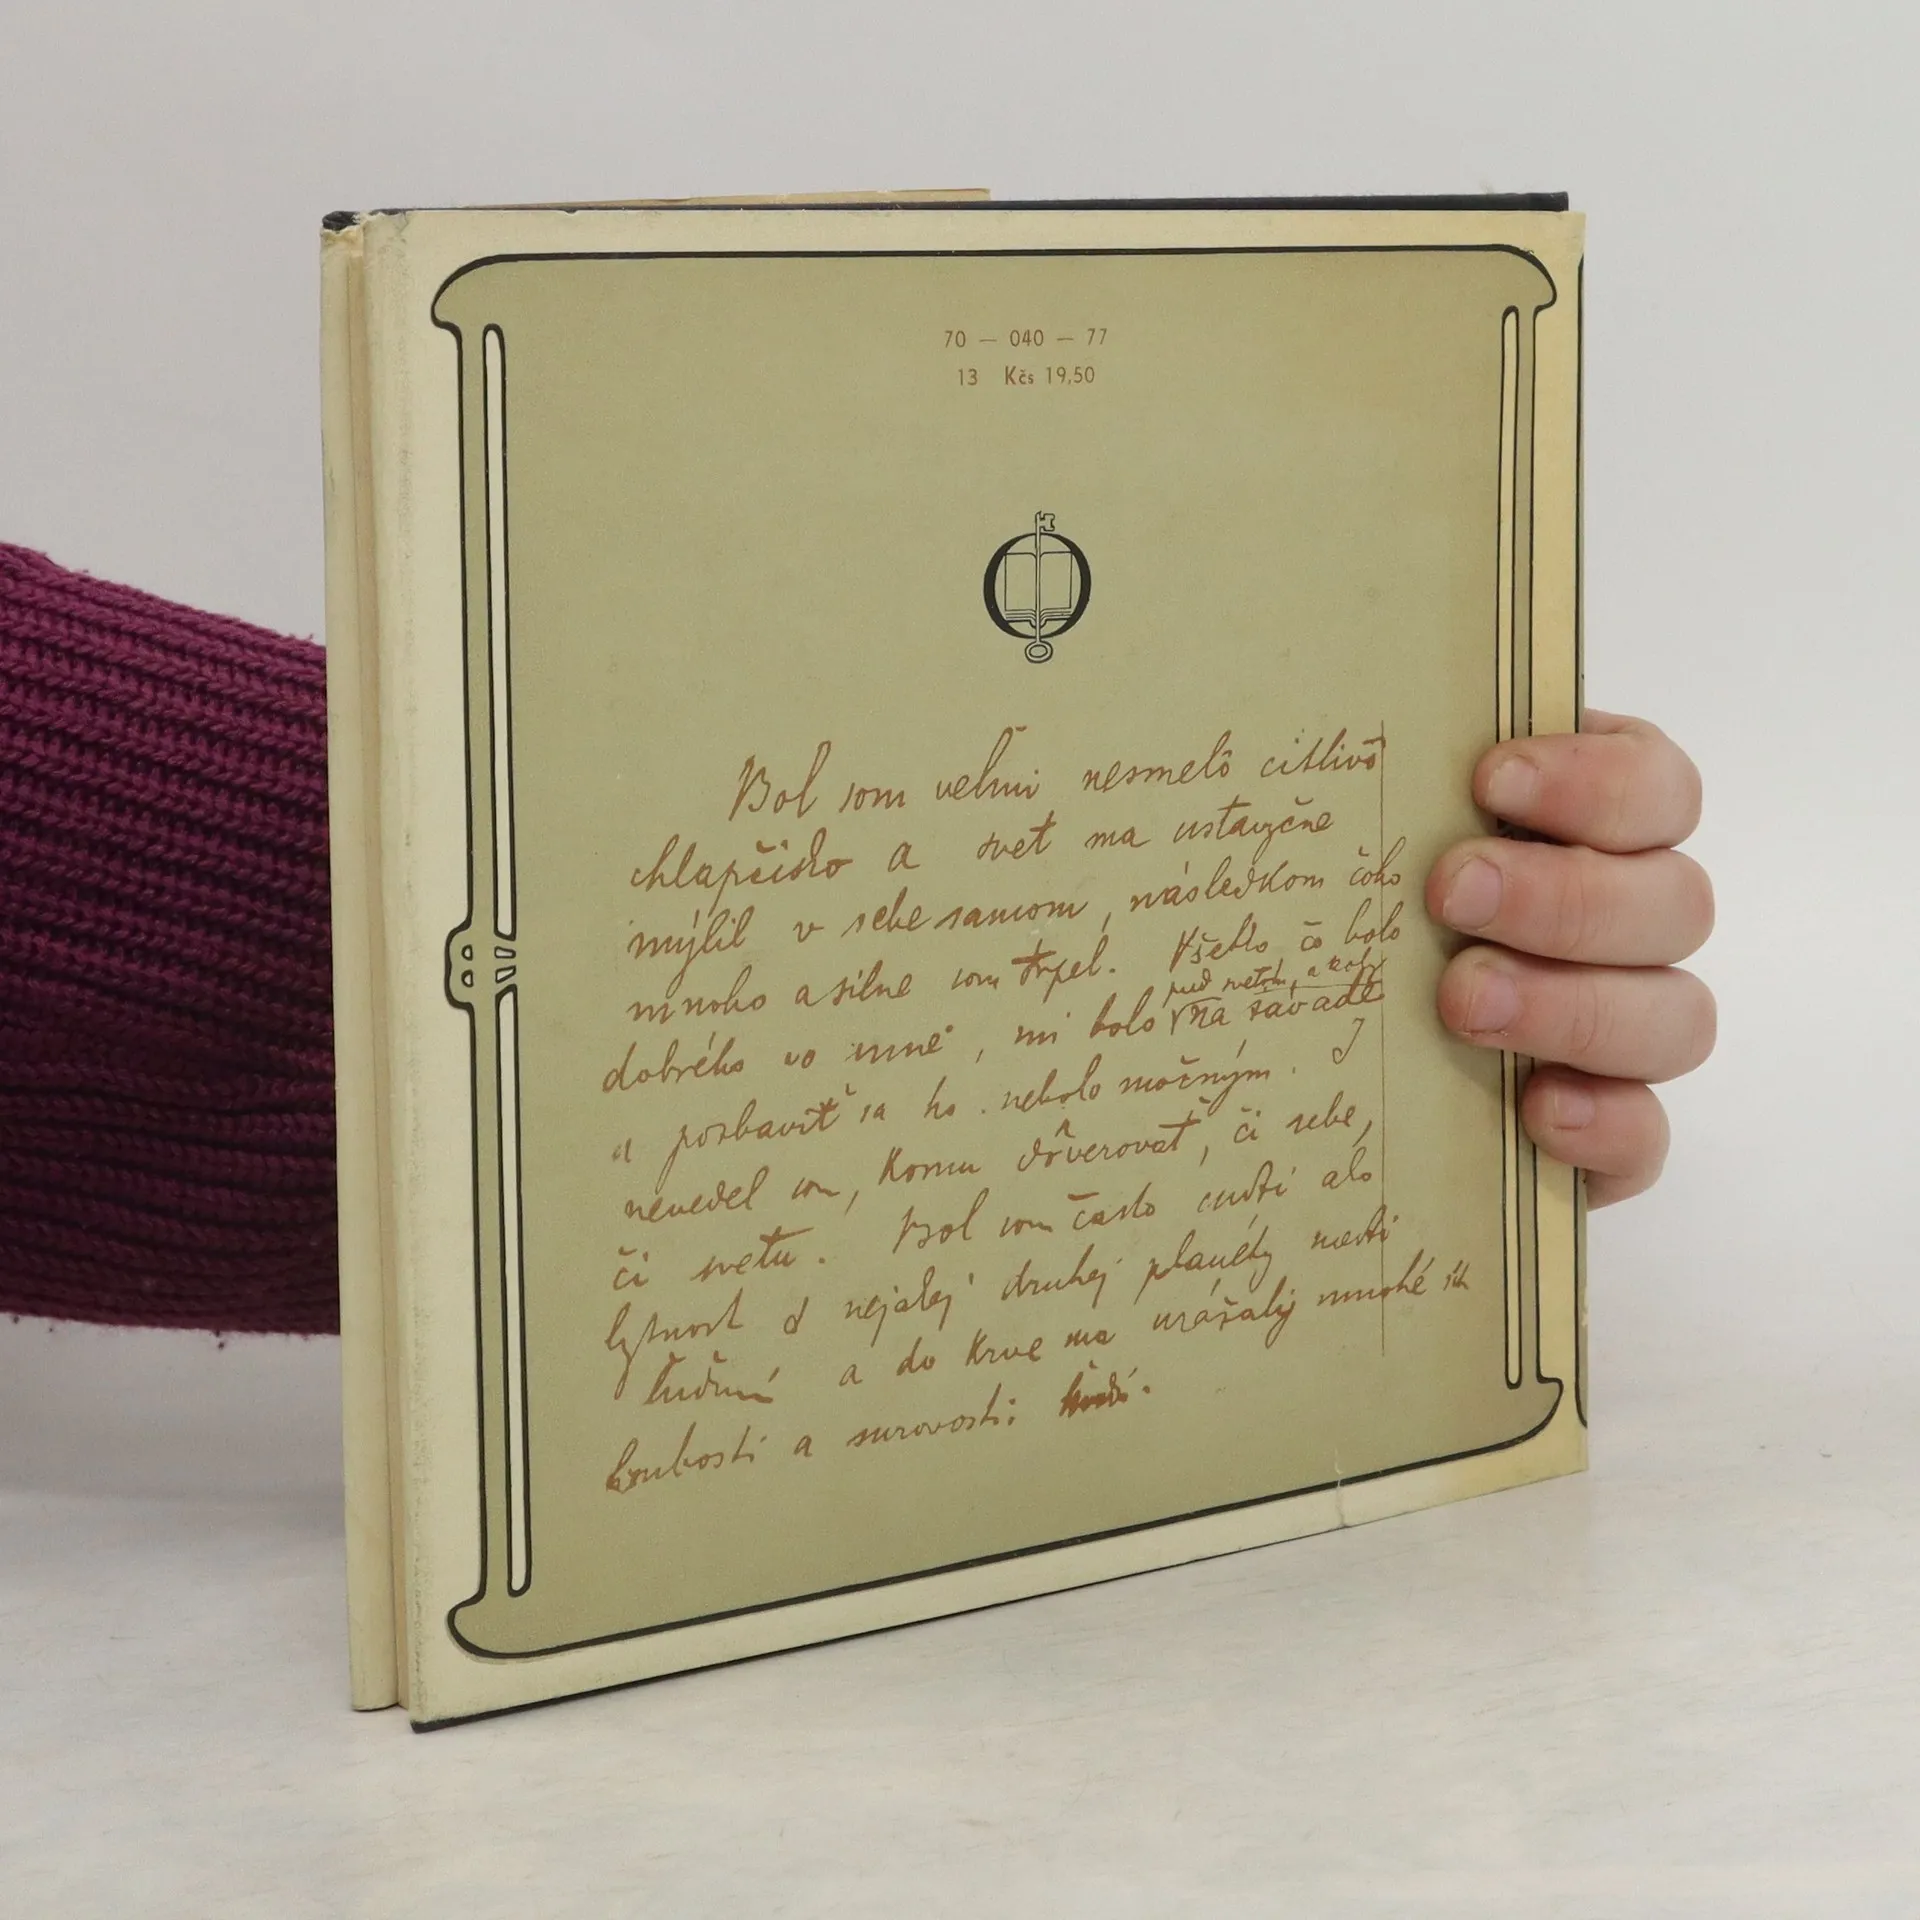 70 — 040 — 77
13 Kčs 19,50
Bol som veľmi nesmelô citlivô
chlapčisko a svet ma ustavyčne
mýlil v sebe samom, následkom čoho
mnoho a silne som trpel. Všetko čo bolo
pred svetom, a
dobrého vo mne, mi bolo na závade
a pozbaviť sa ho nebolo možným. I
nevedel som, komu dôverovať, či sebe,
či svetu. Bol som často cudzí ako
bytnosť z nejakej druhej planéty medzi
ľuďmi a do krve ma urážaly mnohé ich
hrubosti a surovosti.